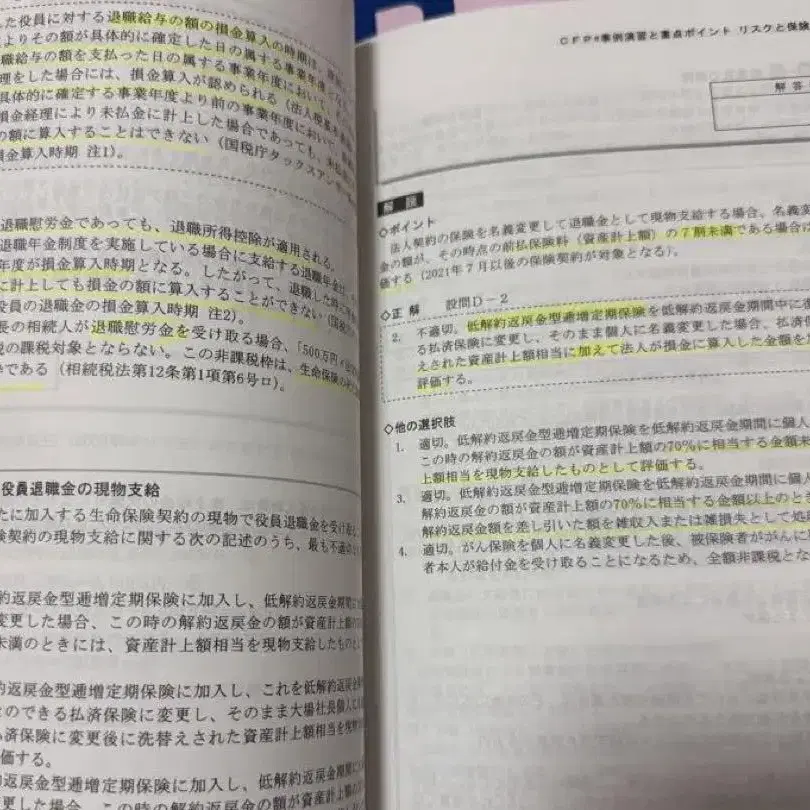 した役員に対する退職給与の額の損金算入の時期は、
よりその額が具体的に確定した日の属する事業年度
職給与の額を支払った日の属する事業年度において、
理をした場合には、損金算入が認められる（法人税基本通達
具体的に確定する事業年度より前の事業年度において、
損金経理により未払金に計上した場合であっても、
の額に算入することはできない（国税庁タックスアンサー
損金算入時期 注1）。
退職慰労金であっても、退職所得控除が適用される。
退職年金制度を実施している場合に支給する退職年金は、
年度が損金算入時期となる。したがって、退職した時に
に計上しても損金の額に算入することができない（国税庁
役員の退職金の損金算入時期 注2）。
長の相続人が退職慰労金を受け取る場合、「500万円×
税の課税対象とならない。この非課税枠は、生命保険の
きである（相続税法第12条第1項第6号ロ）。
役員退職金の現物支給
たに加入する生命保険契約の現物で役員退職金を受け
険契約の現物支給に関する次の記述のうち、最も不適
約返戻金型逓増定期保険に加入し、低解約返戻金期間に
変更した場合、この時の解約返戻金の額が資産計上額の
未満のときには、資産計上額相当を現物支給したものとし
約返戻金型逓増定期保険に加入し、これを低解約返戻金
とのできる払済保険に変更し、そのまま大場社長個人に
済保険に変更後に洗替えされた資産計上額相当を現物
価する。
返戻金型逓増定期保険に加入し、低解約返戻金期間に
更した場合、この時の解約返戻金の額が資産計上額の
CFP®事例演習と重点ポイント リスクと保険
解答
解説
◇ポイント
法人契約の保険を名義変更して退職金として現物支給する場合、名義変
金の額が、その時点の前払保険料（資産計上額）の7割未満である場合に
価する（2021年7月以後の保険契約が対象となる）。
◇正解 設問D－2
2. 不適切。低解約返戻金型逓増定期保険を低解約返戻金期間中に
る払済保険に変更し、そのまま個人に名義変更した場合、払済
えされた資産計上額相当に加えて法人が損金に算入した金額を
評価する。
◇他の選択肢
1. 適切。低解約返戻金型逓増定期保険を低解約返戻金期間に個人
この時の解約返戻金の額が資産計上額の70%に相当する金額未
上額相当を現物支給したものとして評価する。
3. 適切。低解約返戻金型逓増定期保険を低解約返戻金期間に個人
解約返戻金の額が資産計上額の70%に相当する金額以上のと
解約返戻金額を差し引いた額を雑収入または雑損失として処
4. 適切。がん保険を個人に名義変更した後、被保険者ががんに
者本人が給付金を受け取ることになるため、全額非課税とな